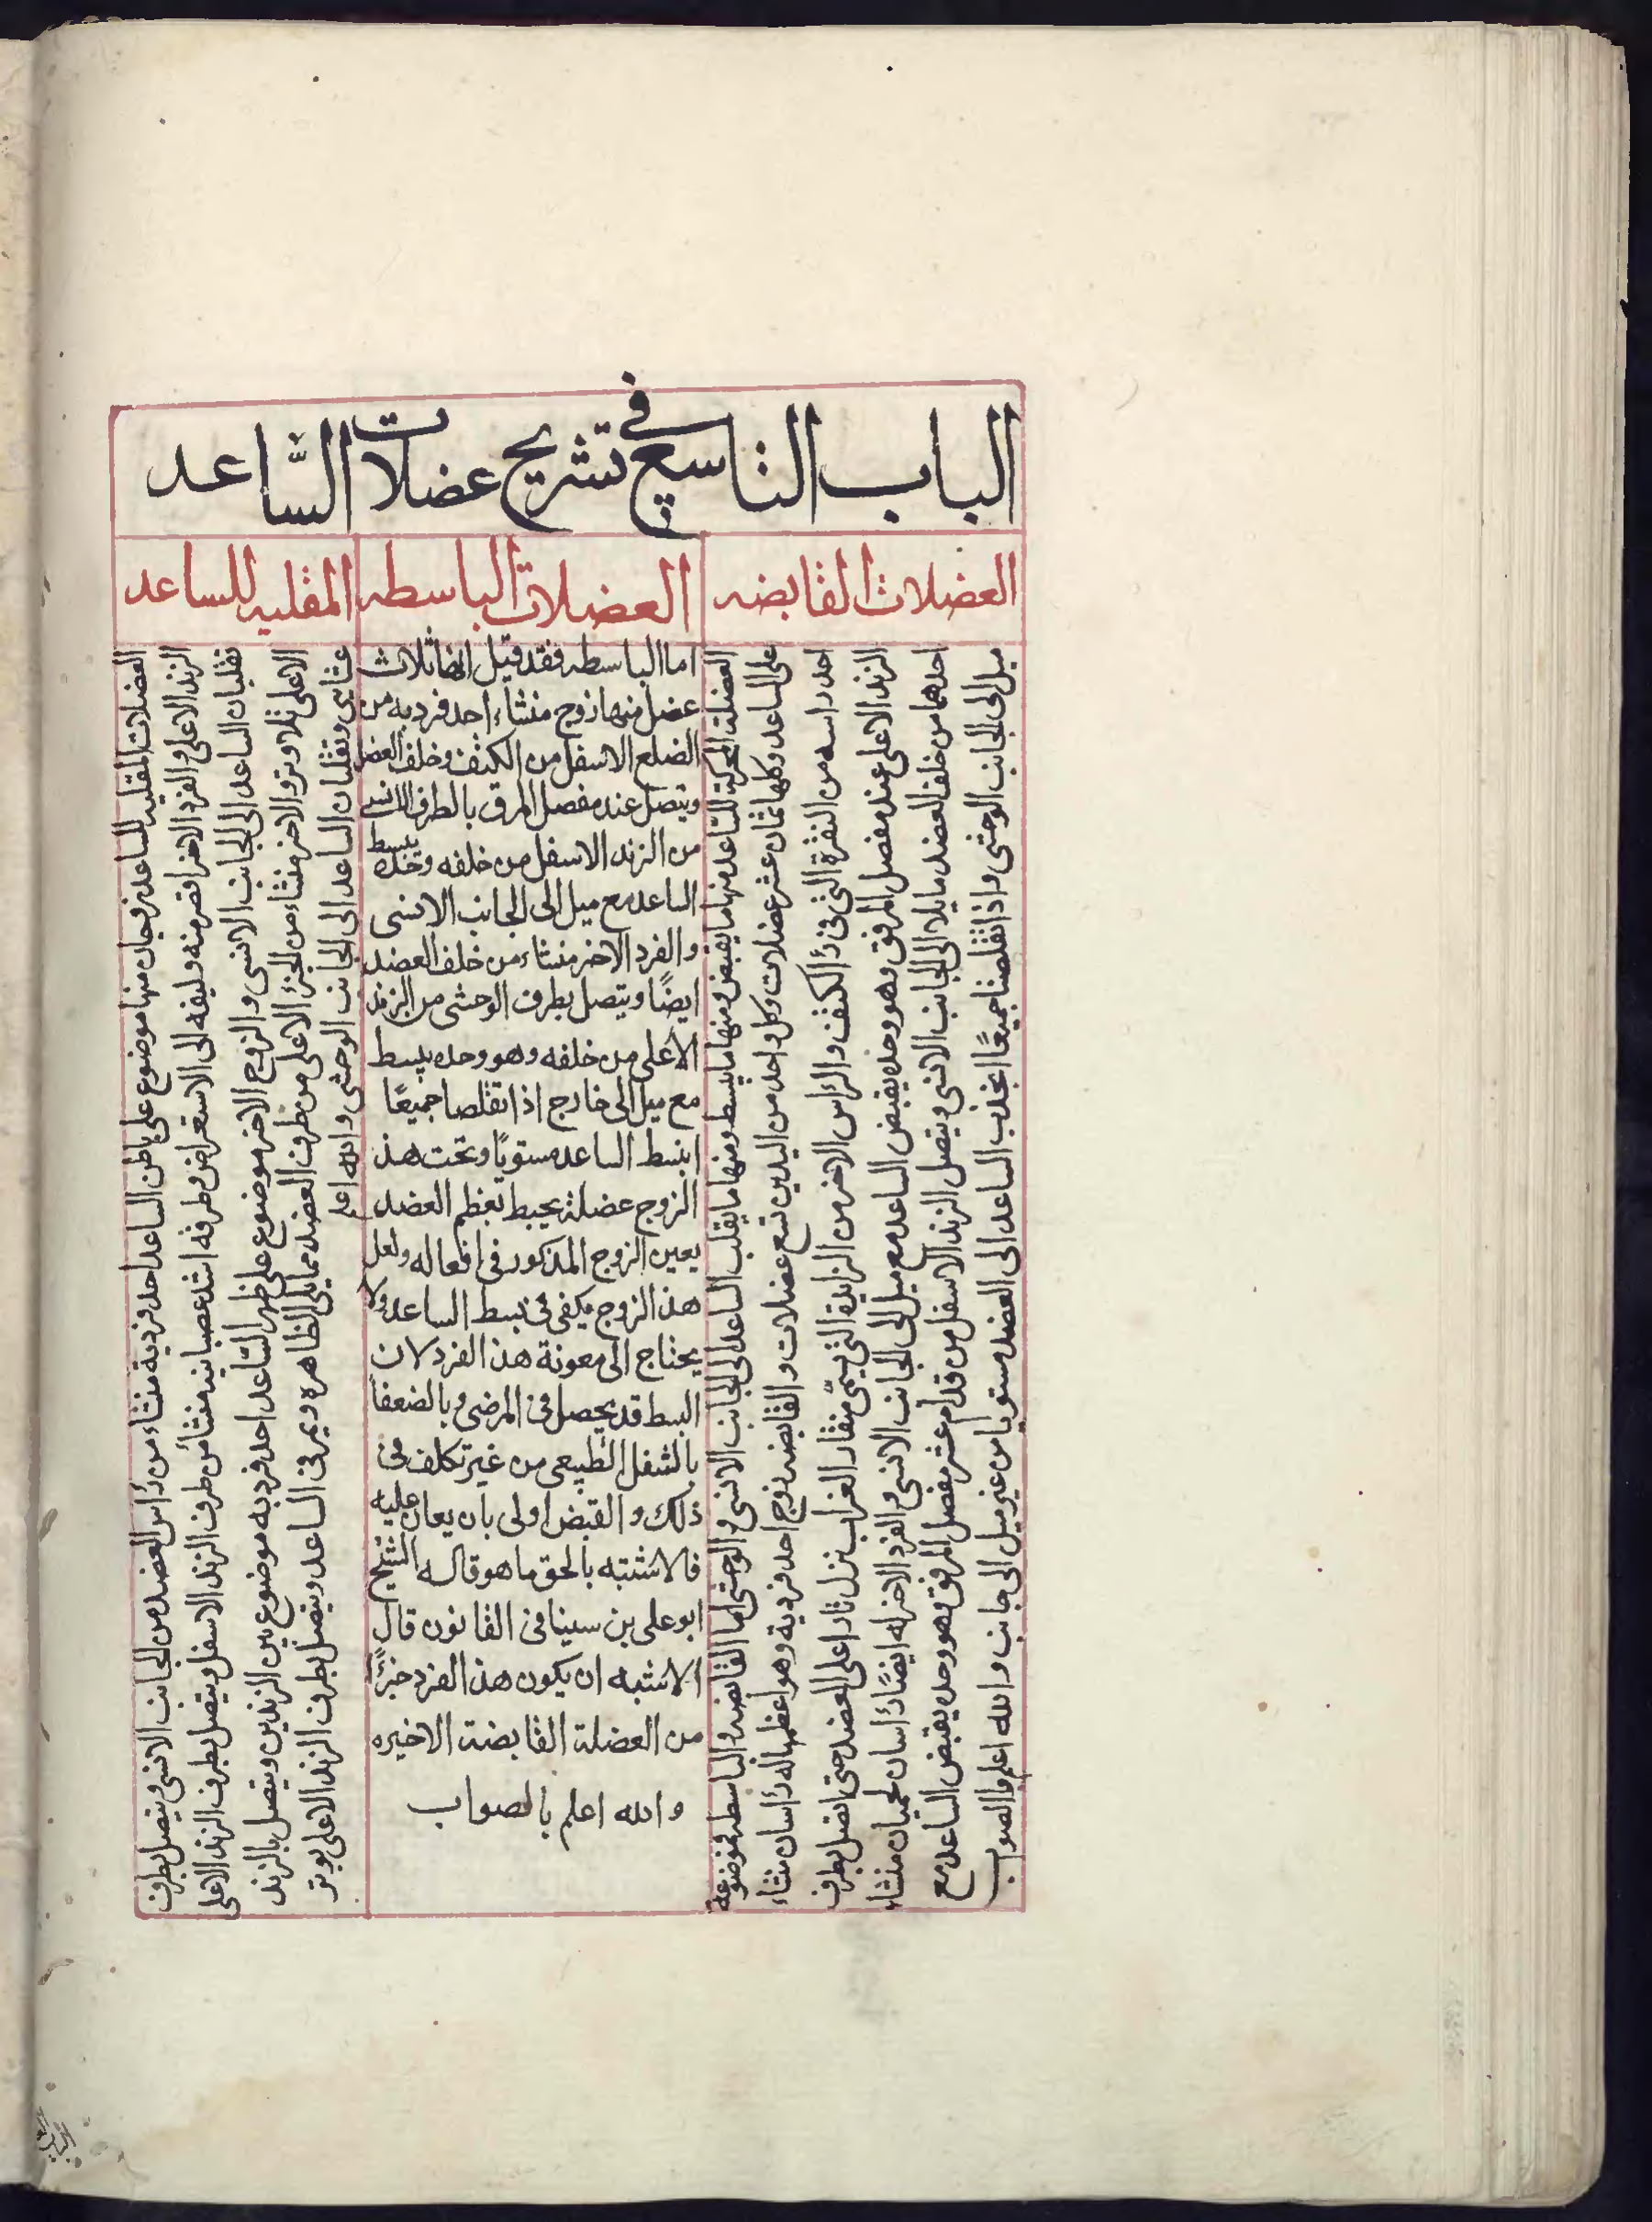 الباب التاسع في تشريح عضلات الساعد
العضلات القابضه
العضلات الباسطه
المقلبه للساعد
العضلة المحركة للساعد منها ما يقبض ومنها ما يبسط ومنها ما يقلب الساعد الى الجانب الانسى و الوحشى اما القابضه والباسطه فموضوعة
على الساعد وكلها ثمان عشر عضلات وكل واحد من اليدين تسع عضلات و القابضه زوج احد فرديه وهو اعظمها له رأسان منشاء
احد راسه من النقرة التى فى رأ الكتف و الرأس الاخر من الزايدة التى تسمّى منقار الغراب نزل نار اعلى العضد حتى اتصل بطرف
الزند الاعلى عند مفصل المرفق وهو وحده يقبض الساعد مع ميل الى الجانب الانسى و الفرد الاخر له ايضًا رأسان لحميان منشاء
احدهما من خلف العضد مايلا الى الجانب الانسى ويتصل الزند الاسفل من قدام عشر مفصل المرفق فهو وحده يقبض الساعد مع
ميل الى الجانب الوحشى و اذا تقلصا جميعًا انجذب الساعد الى العضد مستويا من غير ميل الى جانب والله اعلم والصوب
اما الباسطه فقد قيل انها ثلاث
عضل منها زوج منشاء احد فرديه من
الضلع الاسفل من الكتف وخلف العضد
ويتصل عند مفصل المرفق بالطرف الانسى
من الزند الاسفل من خلفه وحده يبسط
الساعد مع ميل الى الجانب الانسى
والفرد الاخر منشاء من خلف العضد
ايضًا ويتصل بطرف الوحشى من الزند
الاعلى من خلفه وهو وحده يبسط
مع ميل الى خارج اذا تقلصا جميعًا
انبسط الساعد مستويًا وتحت هذ
الزوج عضلة يحيط بعظم العضد
يعين الزوج المذكور فى افعاله ولعل
هذ الزوج يكفى فى بسط الساعد ولا
يحتاج الى معونة هذ الفرد لان
البسط قد يحصل فى المرضى و بالضعفا
بالشغل الطبيعى من غير تكلف فى
ذلك و القبض اولى بان يعان عليه
فالاشتبه بالحق ما هو قاله الشيخ
ابو على بن سينا فى القانون قال
الاشتبه ان يكون هذ الفرد جزءًا
من العضلة القابضة الاخيره
والله اعلم بالصواب
العضلات المقلبه للساعد زوجان منها موضوع على باطن الساعد احد فرديه منشاء من رأس العضد من الجانب الانسى ويتصل بطرف
الزند الاعلى و الفرد الاخر اقصر منه وليفه الى الاستعراض وطرفه اشد عصبانيه منشأ من طرف الزند الاسفل ويتصل بطرف الزند الاعلى
تقلبان الساعد الى الجانب الانسى و الزوج الاخر موضوع على ظهر الساعد احد فرديه موضوع بين الزندين ويتصل بالزند
الاعلى بلا وتر و الاخر منشاء من الجزء الاعلى من طرف العضد مما يلى الظاهره ويمر فى الساعد ويتصل بطرف الزند الاعلى بوتر
غشايى وتقلبان الساعد الى الجانب الوحشى والله اعلم